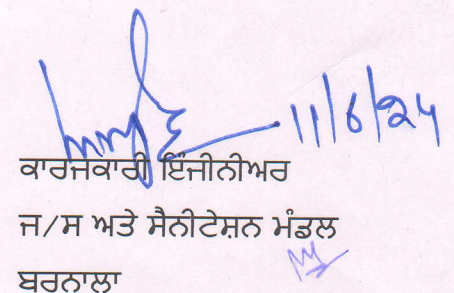 11/6/24
ਕਾਰਜਕਾਰੀ ਇੰਜੀਨੀਅਰ
ਜ/ਸ ਅਤੇ ਸੈਨੀਟੇਸ਼ਨ ਮੰਡਲ
ਬਰਨਾਲਾ